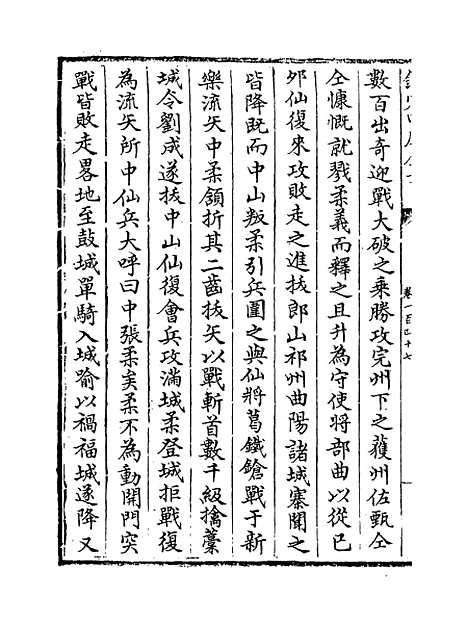 欽定四庫全書
卷一百四十七
數百出奇迎戰大破之乘勝攻完州下之獲州佐甄仝
仝慷慨就戮柔義而釋之且升為守使將部曲以從已
外仙復來攻敗走之進拔郎山祁州曲陽諸城寨聞之
皆降既而中山叛柔引兵圍之與仙將葛鐵鎗戰于新
樂流矢中柔頷折其二齒拔矢以戰斬首數千級擒藁
城令劉成遂拔中山仙復會兵攻滿城柔登城拒戰復
為流矢所中仙兵大呼曰中張柔矣柔不為動開門突
戰皆敗走畧地至鼓城單騎入城喻以禍福城遂降又